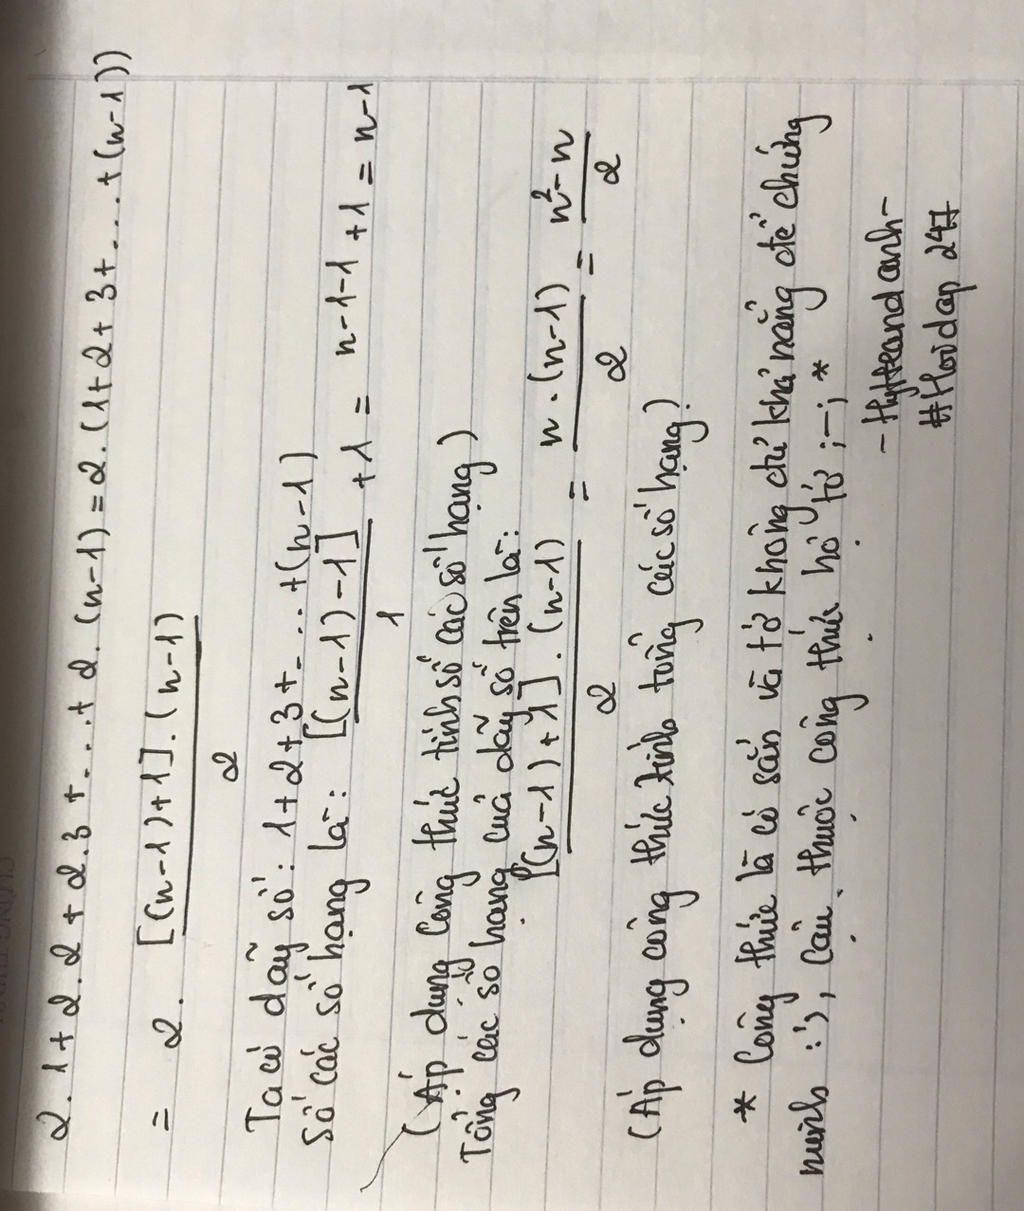 2.1+2.2+2.3+...+2.(n-1)=2.(1+2+3+...+(n-1))
= 2. [(n-1)+1].(n-1)
2
Ta có dãy số: 1+2+3+...+(n-1)
Số các số hạng là: [(n-1)-1] +1 = n-1-1+1=n-1
1
(Áp dụng công thức tính số các số hạng)
Tổng các số hạng của dãy số trên là:
[(n-1)+1].(n-1) = n.(n-1) = n²-n
2 2 2
(Áp dụng công thức tính tổng các số hạng)
* Công thức là có sẵn và tớ không đủ khả năng để chứng
minh :'), cậu thuộc công thức hộ tớ ;-; *
#Hoidap 247